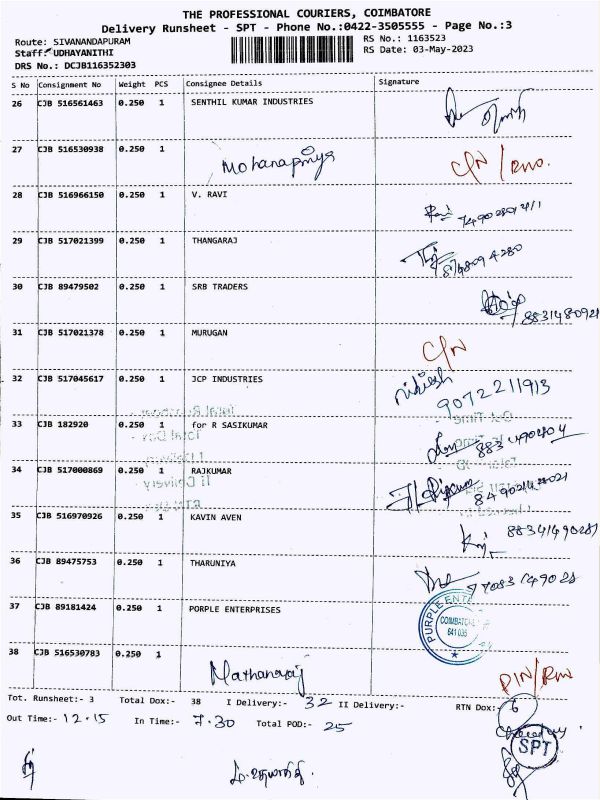 THE PROFESSIONAL COURIERS, COIMBATORE
Delivery Runsheet - SPT - Phone No.:0422-3505555 - Page No.:3
Route: SIVANANDAPURAM RS No.: 1163523
Staff: UDHAYANITHI RS Date: 03-May-2023
DRS No.: DCJB116352303
S No Consignment No Weight PCS Consignee Details Signature
26 CJB 516561463 0.250 1 SENTHIL KUMAR INDUSTRIES
27 CJB 516530938 0.250 1 Mohanapriya C/N / RNO.
28 CJB 516966150 0.250 1 V. RAVI
29 CJB 517021399 0.250 1 THANGARAJ
30 CJB 89479502 0.250 1 SRB TRADERS 8831480921
31 CJB 517021378 0.250 1 MURUGAN C/N
32 CJB 517045617 0.250 1 JCP INDUSTRIES nikiesh 9072211913
33 CJB 182920 0.250 1 for R SASIKUMAR
34 CJB 517000869 0.250 1 RAJKUMAR
35 CJB 516970926 0.250 1 KAVIN AVEN
36 CJB 89475753 0.250 1 THARUNIYA
37 CJB 89181424 0.250 1 PORPLE ENTERPRISES PURPLE ENT COIMBATORE 641 035
38 CJB 516530783 0.250 1 Mathanaraj
Tot. Runsheet:- 3 Total Dox:- 38 I Delivery:- 32 II Delivery:- RTN Dox:- 6
Out Time:- 12.15 In Time:- 7.30 Total POD:- 25
SPT